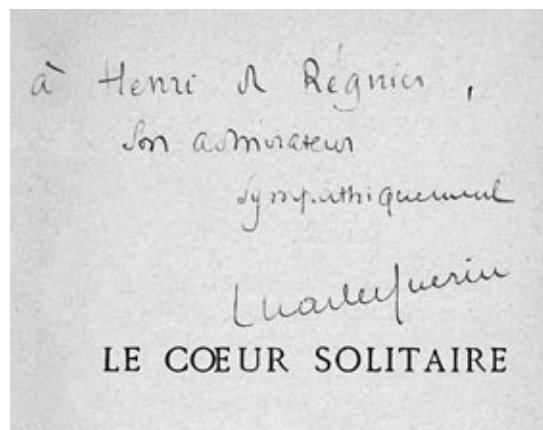 à Henri de Régnier,
son admirateur
sympathiquement
Charles Guérin
LE CŒUR SOLITAIRE